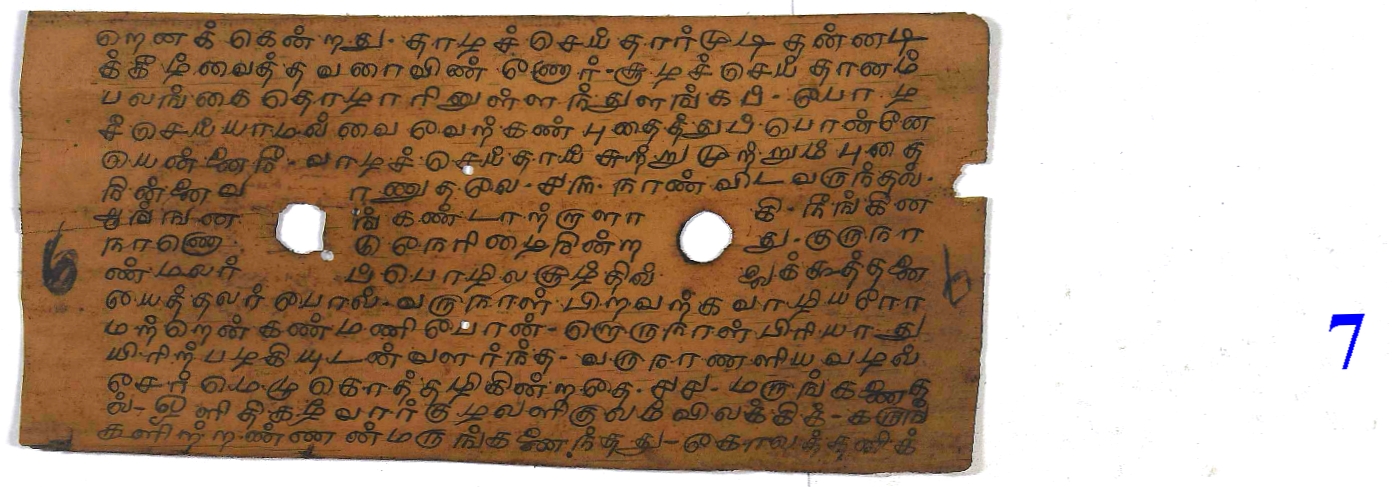 றெனக் கென்றது- தாழச் செய் தார்முடி தன்னடி
க்கீழ் வைத்த வரை விண் ணோர்-சூழச் செய் தானம்
பலங்கை தொழாரினுள்ளந் துளங்கப் - போழ
ச் செய்யாமல் வை வேற்கண் புதைத்துப் பொன்னே
யென்னை நீ- வாழச் செய்தாய் சுற்று முற்றும் புதை
நின்னை வாணுதலே- நாண் விட வருந்தல்-
ங் கண்டாற்குளா கி- நீங்கின
நாணொடு நேரிழை நின்ற து- குருநா
ண்மலர் ப் பொழில் சூழ் தில் லைக்கூத்தனை
யேத்தலர் போல்- வருநாள் பிறவற்க வாழியரோ
மற்றென் கண்மணி போன்- றொருநாள் பிரியாது
யிரிற் பழகியுடன் வளர்ந்த- வருநாணளிய வழல்
சேர் மெழு கொத்தழிகின்றதே- மருங்கணைத
ல்- ஒளி திகழ் வார்குழலளிகுலம் விலக்கிக்- கருங்
களிற்றண்ணன் மருங்கணைந்தது- கோலத்தனிக்